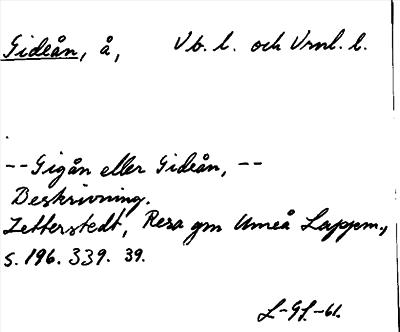 Gideån, å, Vb. l. och Vrml. l.
--Gigån eller Gideån, --
Beskrivning.
Zetterstedt, Resa gm Umeå Lappm.,
s. 196. 339. 39.